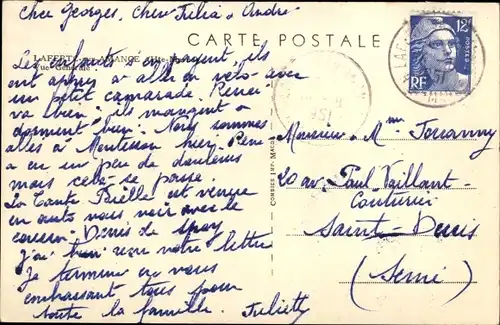 Cher Georges, Chère Julia & André
CARTE POSTALE
LAFERTÉ AMANCE
Vue Générale
Les enfants ont, ils
ont appris à aller à vélo avec
un petit camarade. Pierre
va bien ils mangent &
dorment bien. Nous sommes
allés à hier. Pierre
a eu un peu de douleurs
mais cela se passe.
La Tante est venue
en auto nous voir avec le
cousin Denis de
J'ai bien reçu votre lettre
Je termine en vous
embrassant tous pour
toute la famille. Juliette
12F
POSTES
RF
951
COMBIER IMP. MACON
Monsieur & Mme
20 av. Paul Vaillant-
Couturier
Saint-Denis
(Seine)